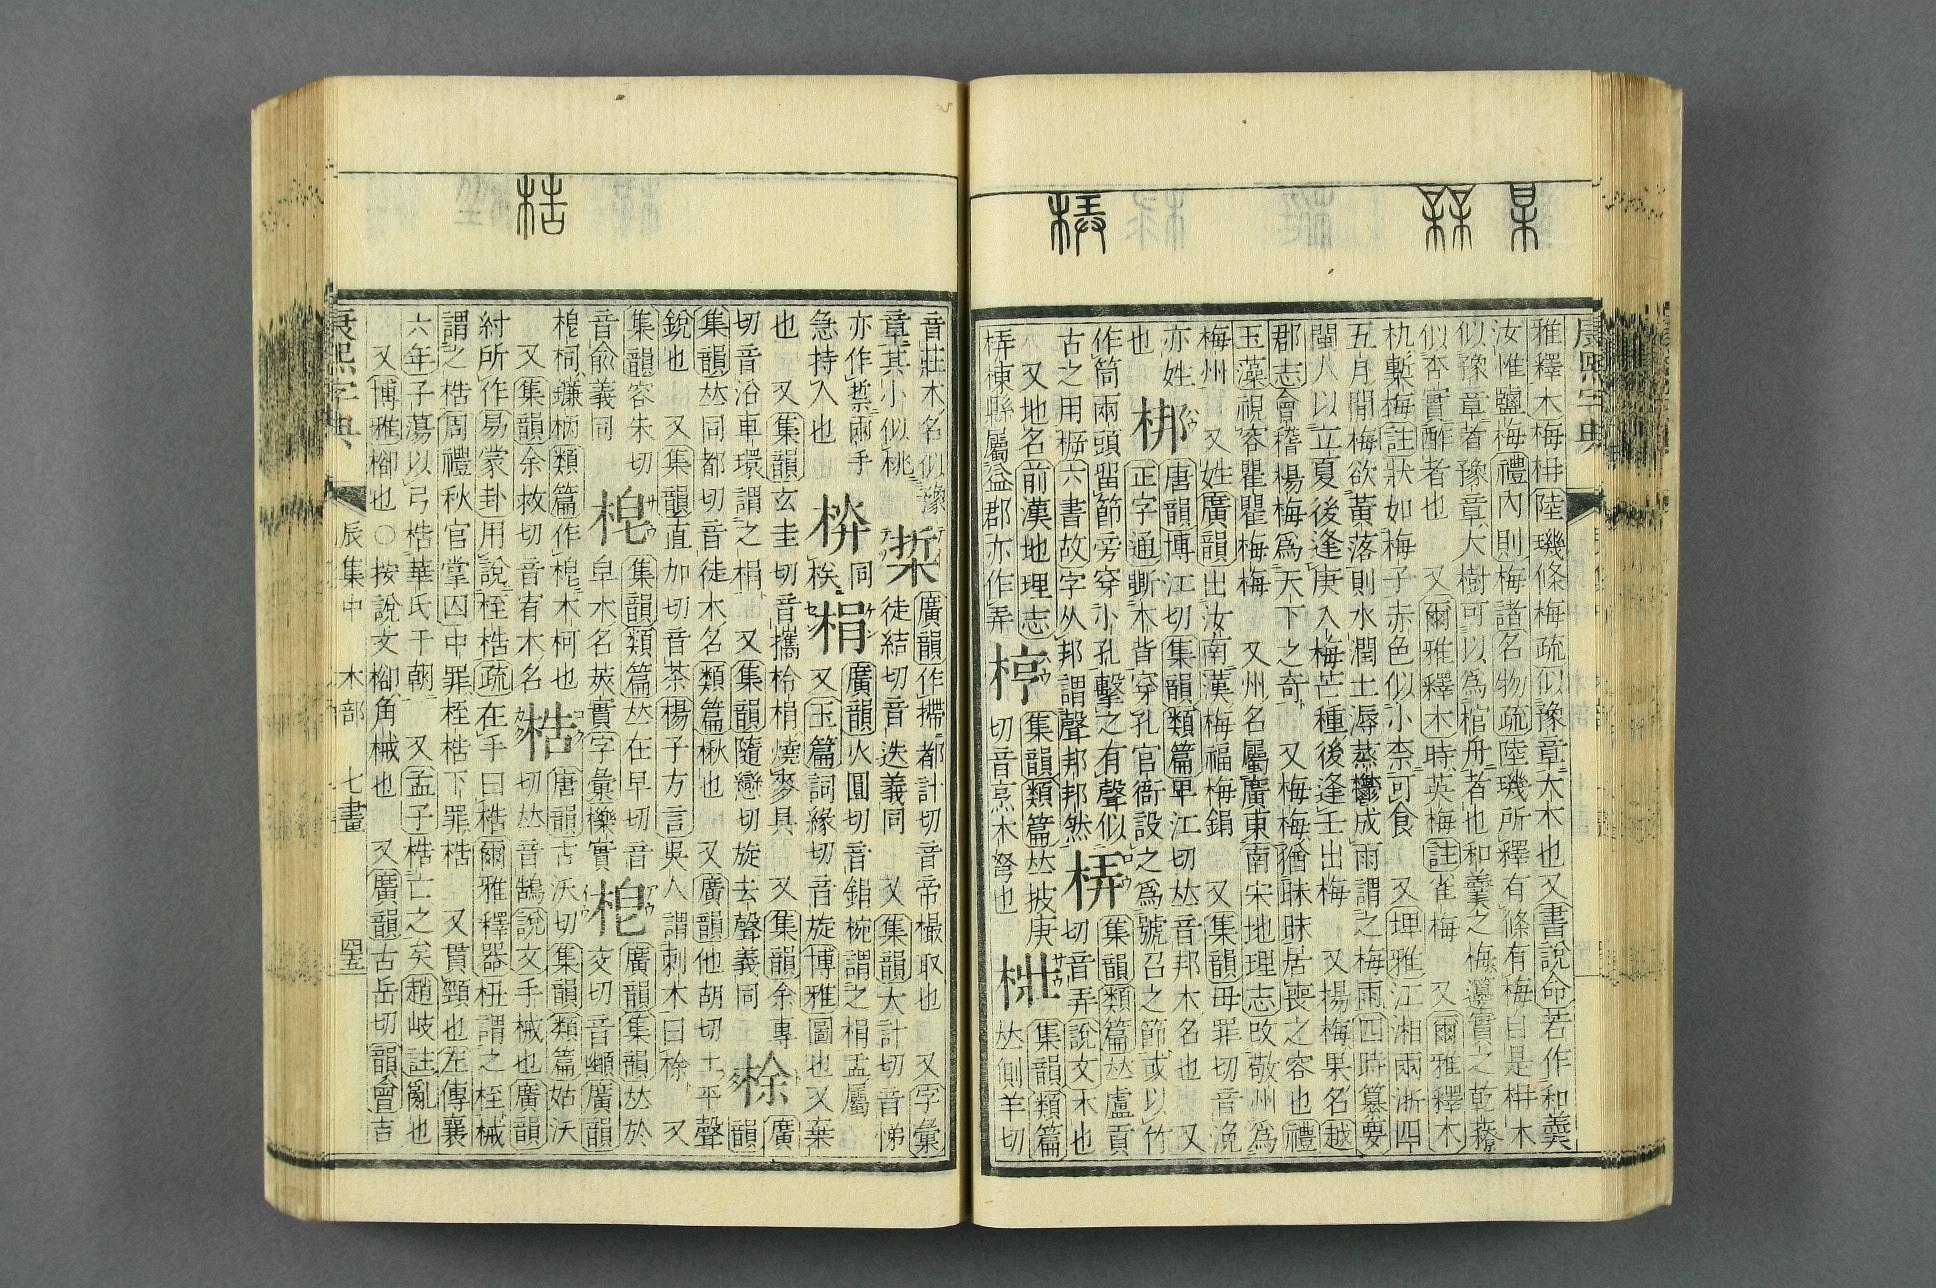 雅釋木梅柟陸璣條梅疏似豫章大木也又書說命若作和羹
汝惟鹽梅禮內則梅諸名物疏陸璣所釋有條有梅自是柟木
似豫章者豫章大樹可以為棺舟者也和羹之梅籩實之乾䕩
似杏實酢者也 又爾雅釋木時英梅註雀梅 又爾雅釋木
朹檕梅註狀如梅子赤色似小柰可食 又埤雅江湘兩浙四
五月閒梅欲黃落則水潤土溽蒸鬱成雨謂之梅雨四時纂要
閩人以立夏後逢庚入梅芒種後逢壬出梅 又楊梅果名越
郡志會稽楊梅為天下之奇 又梅梅猶昧昧居喪之容也禮
玉藻視容瞿瞿梅梅 又州名屬廣東南宋地理志改敬州為
梅州 又姓廣韻出汝南漢梅福梅鋗 又集韻母罪切音浼
亦姓
梆
唐韻博江切集韻類篇𤰞江切𠀤音邦木名也 又
也
正字通斲木背穿孔官衙設之為號召之節或以竹
作筒兩頭留節旁穿小孔擊之有聲似
古之用㭼六書故字从邦謂聲邦邦然
梇
集韻類篇𠀤盧貢
切音弄說文木也
又地名前漢地理志
弄棟縣屬益郡亦作弄
梈
集韻類篇𠀤披庚
切音烹木弩也
梉
集韻類篇
𠀤側羊切
音莊木名似豫
章其小似桃
梊
廣韻作㨮都計切音帝撮取也 又字彙
徒結切音迭義同 又集韻大計切音悌
亦作㨖兩手
急持入也
梋
廣韻火圓切音鋗椀謂之梋盂屬
又玉篇詞緣切音旋博雅圖也又棄
也 又集韻玄圭切音攜柃梋燒麥具 又集韻余專
切音沿車環謂之梋 又集韻隨戀切旋去聲義同
梌
廣
韻
集韻𠀤同都切音徒木名類篇楸也 又廣韻他胡切土平聲
銳也 又集韻直加切音茶楊子方言吳人謂刺木曰梌 又
集韻容朱切
音俞義同
梍
集韻類篇𠀤在早切音
皁木名莢實字彙櫟實
梎
廣韻集韻𠀤於
交切音𡎺廣韻
柯也
又集韻余救切音宥木名
梏
唐韻古沃切集韻類篇姑沃
切𠀤音鵠說文手械也廣韻
紂所作易蒙卦用說桎梏疏在手曰梏爾雅釋器杻謂之梏械
謂之桎周禮秋官掌囚中罪桎梏下罪梏 又貫頸也左傳襄
六年子蕩以弓梏華氏于朝 又孟子梏亡之矣趙岐註亂也
又博雅㭲也〇按說文㭲角械也 又廣韻古岳切韻會吉
康熙字典
辰集中 木部 七畫